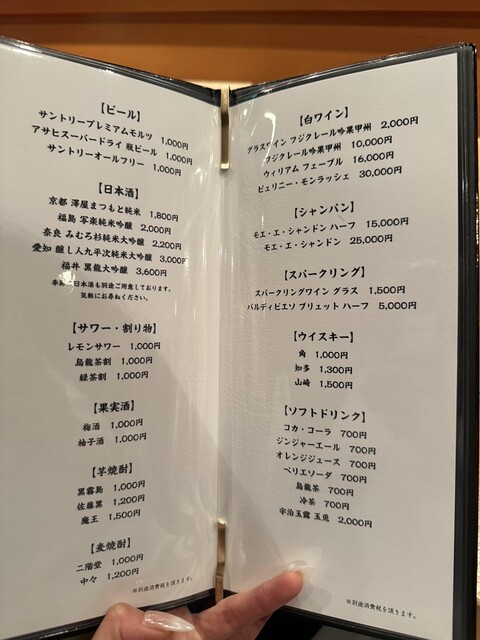 【ビール】
サントリープレミアムモルツ 1,000円
アサヒスーパードライ 瓶ビール 1,000円
サントリーオールフリー 1,000円
【日本酒】
京都 澤屋まつもと純米 1,800円
福島 写楽純米吟醸 2,000円
奈良 みむろ杉純米大吟醸 2,200円
愛知 醸し人九平次純米大吟醸 3,000円
福井 黒龍大吟醸 3,600円
日本酒も別途ご用意しております。
気軽にお尋ねください。
【サワー・割り物】
レモンサワー 1,000円
烏龍茶割 1,000円
緑茶割 1,000円
【果実酒】
梅酒 1,000円
柚子酒 1,000円
【芋焼酎】
黒霧島 1,000円
佐藤黒 1,200円
魔王 1,500円
【麦焼酎】
二階堂 1,000円
中々 1,200円
※別途消費税を頂きます。
【白ワイン】
グラスワイン フジクレール吟果甲州 2,000円
フジクレール吟果甲州 10,000円
ウィリアム フェーブル 16,000円
ピュリニー・モンラッシェ 30,000円
【シャンパン】
モエ・エ・シャンドン ハーフ 15,000円
モエ・エ・シャンドン 25,000円
【スパークリング】
スパークリングワイン グラス 1,500円
バルディビエソ ブリュット ハーフ 5,000円
【ウイスキー】
角 1,000円
知多 1,300円
山崎 1,500円
【ソフトドリンク】
コカ・コーラ 700円
ジンジャーエール 700円
オレンジジュース 700円
ペリエソーダ 700円
烏龍茶 700円
冷茶 700円
宇治玉露 玉兎 2,000円
※別途消費税を頂きます。